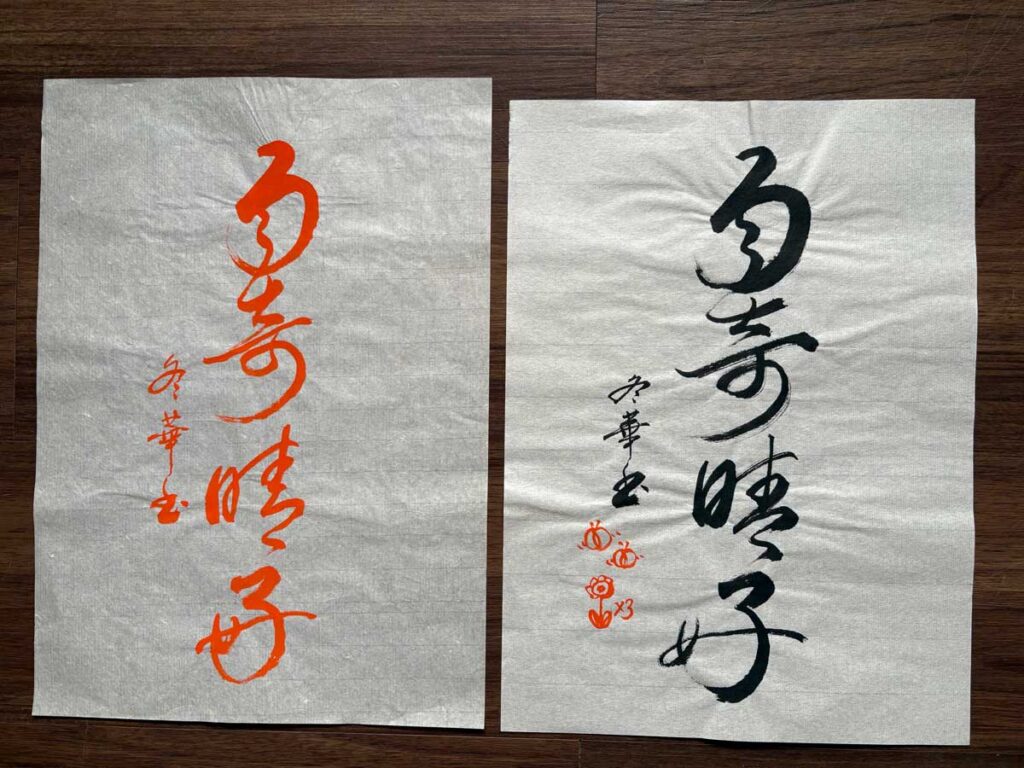 雨奇晴好
冬華書
雨奇晴好
冬華書
x3